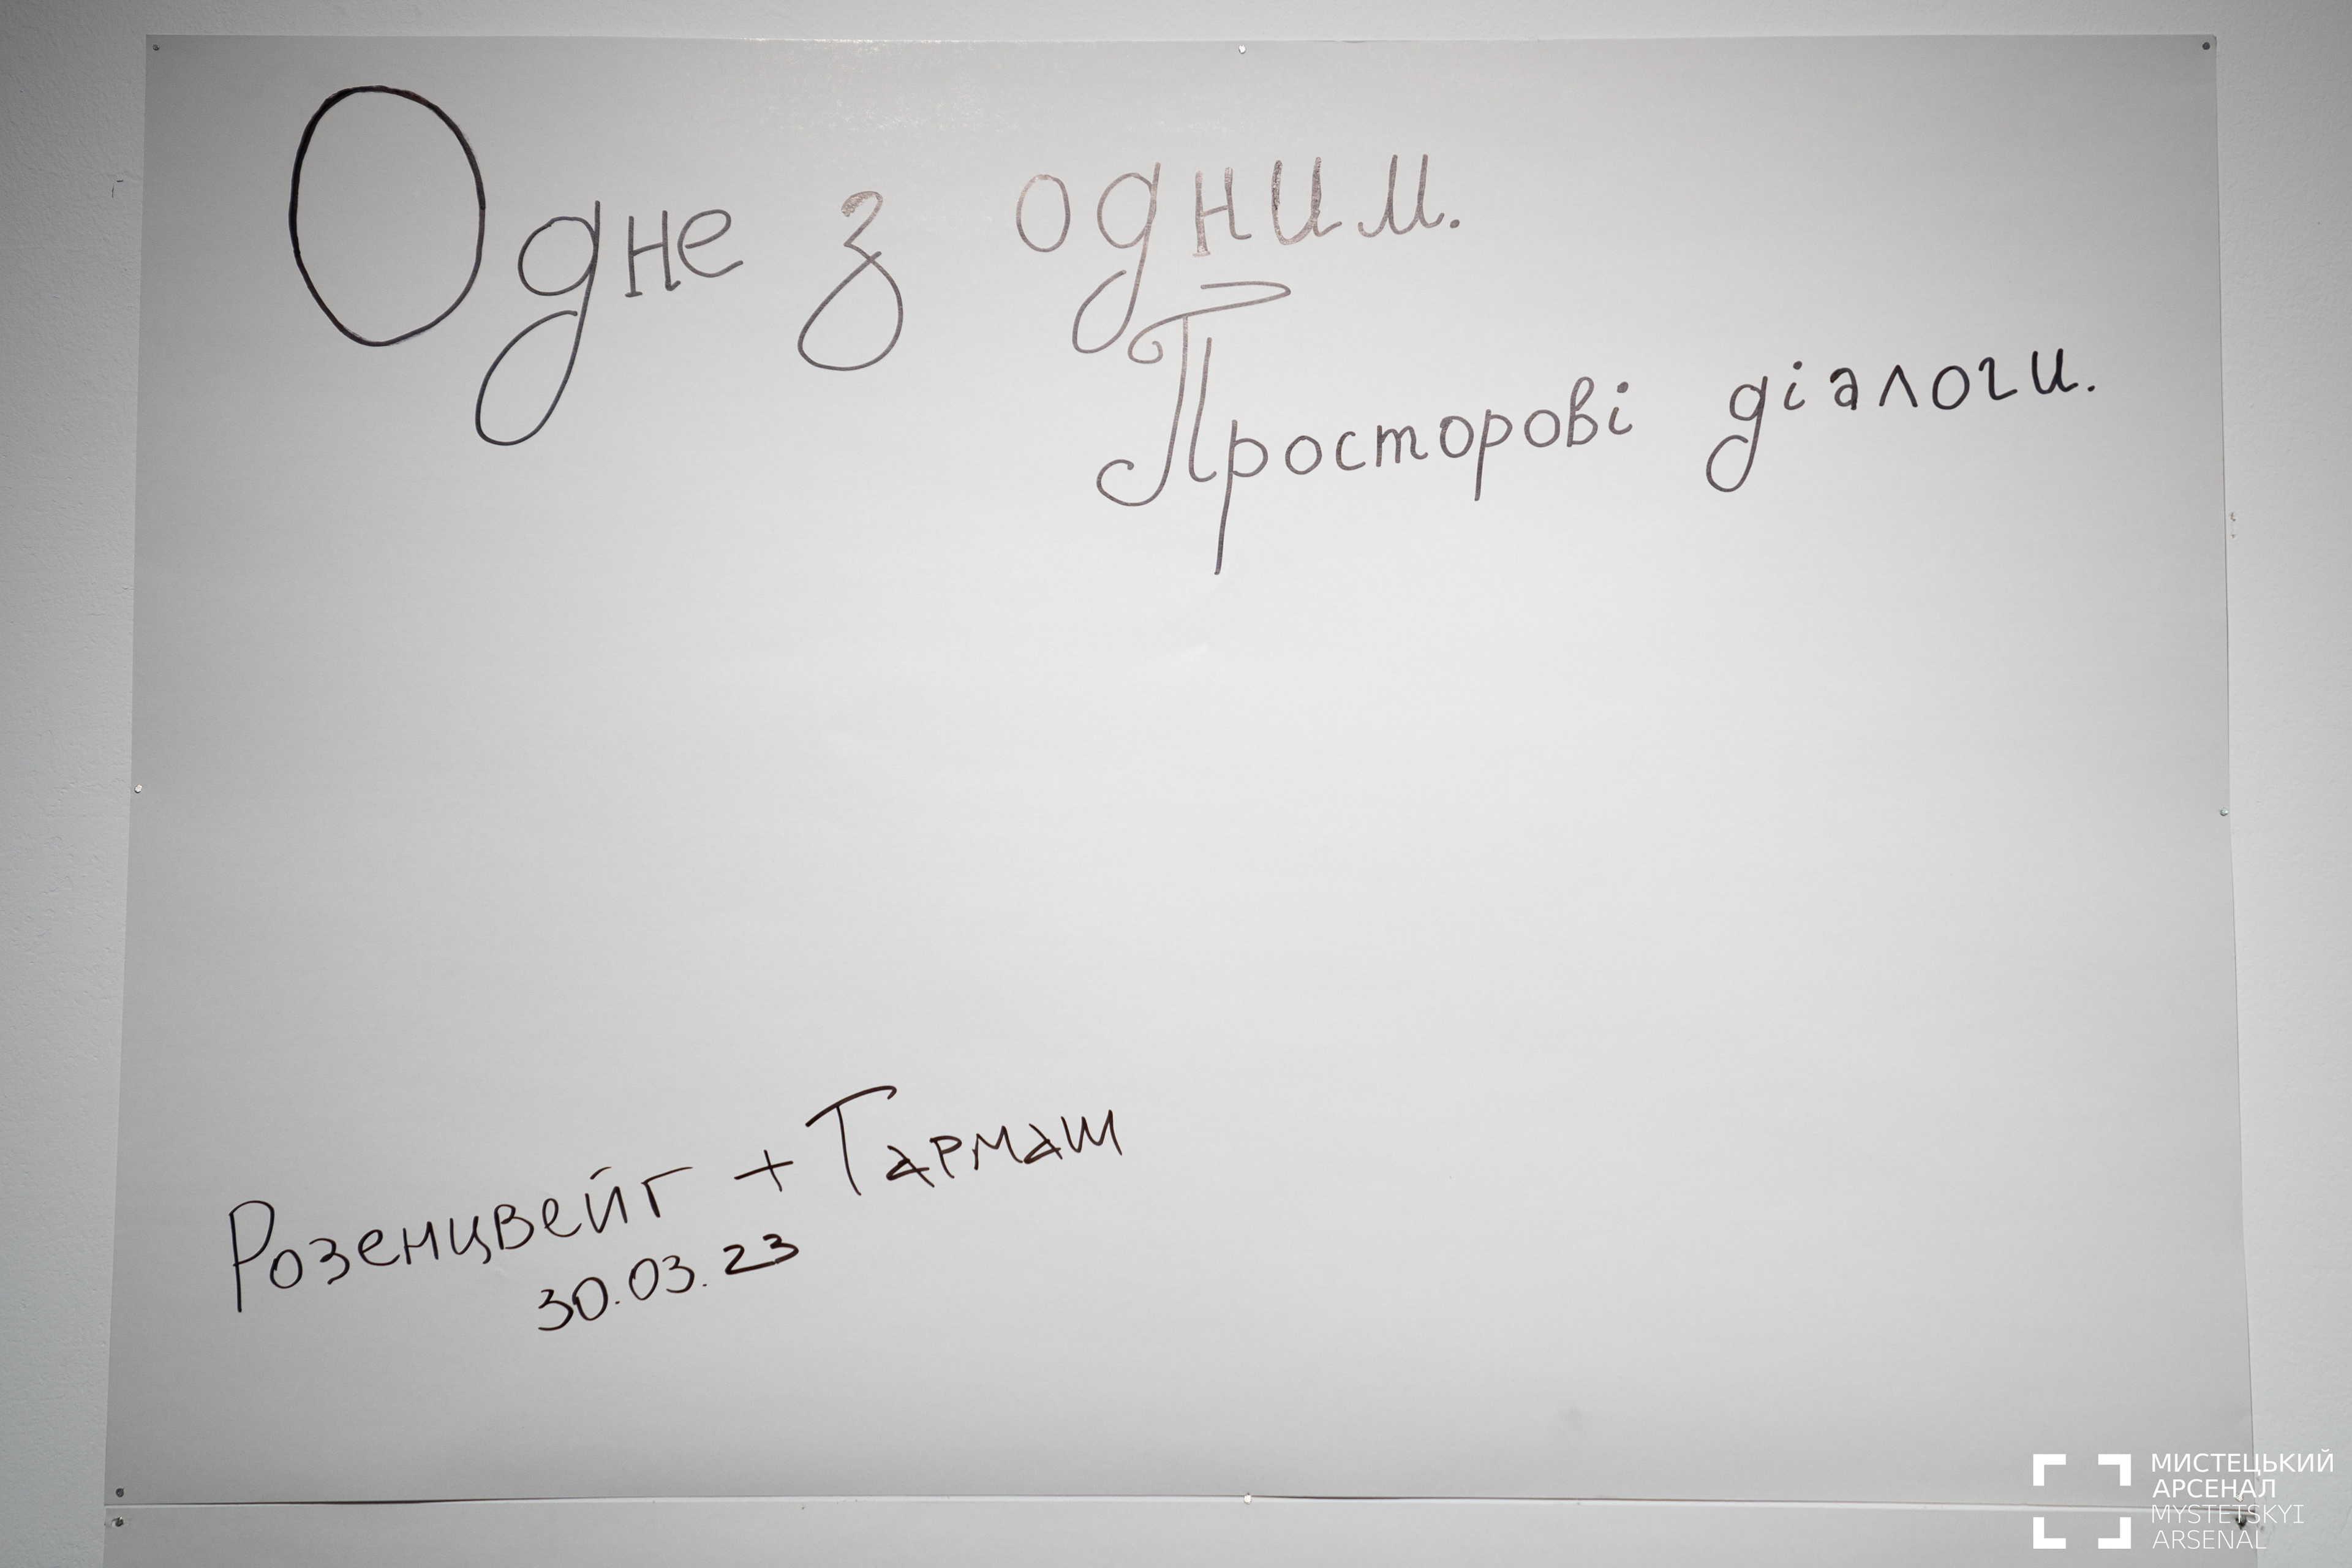 Одне з одним.
Просторові діалоги.
Розенцвейг + Тармаш
30.03.23
МИСТЕЦЬКИЙ
АРСЕНАЛ
MYSTETSKYI
ARSENAL